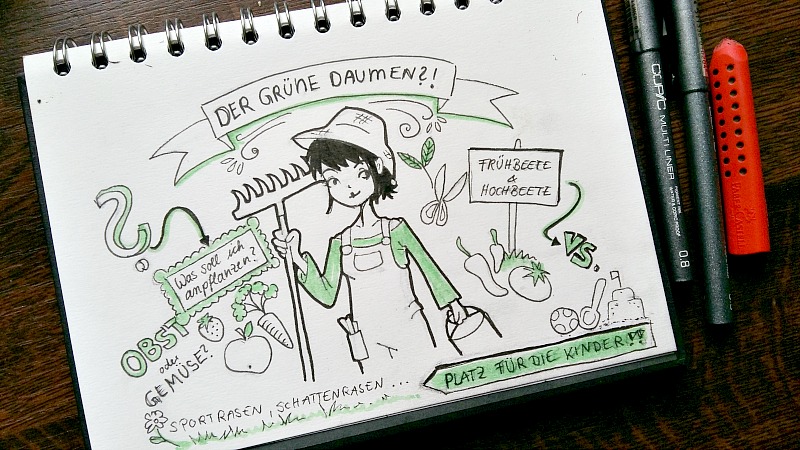 DER GRÜNE DAUMEN?!
Was soll ich
anpflanzen?
FRÜHBEETE
&
HOCHBEETE
VS.
OBST
oder
GEMÜSE?
SPORTRASEN, SCHATTENRASEN...
PLATZ FÜR DIE KINDER!!
COPIC MULTI LINER
0.8